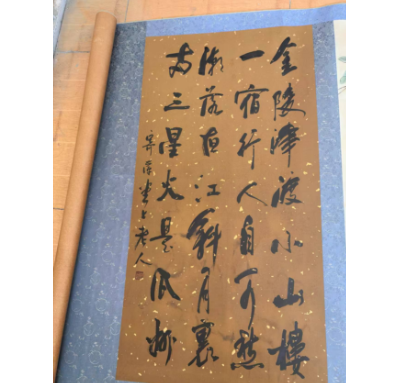 金陵津渡小山樓
一宿行人自可愁
潮落夜江斜月裏
兩三星火是瓜州
寄萍堂上老人